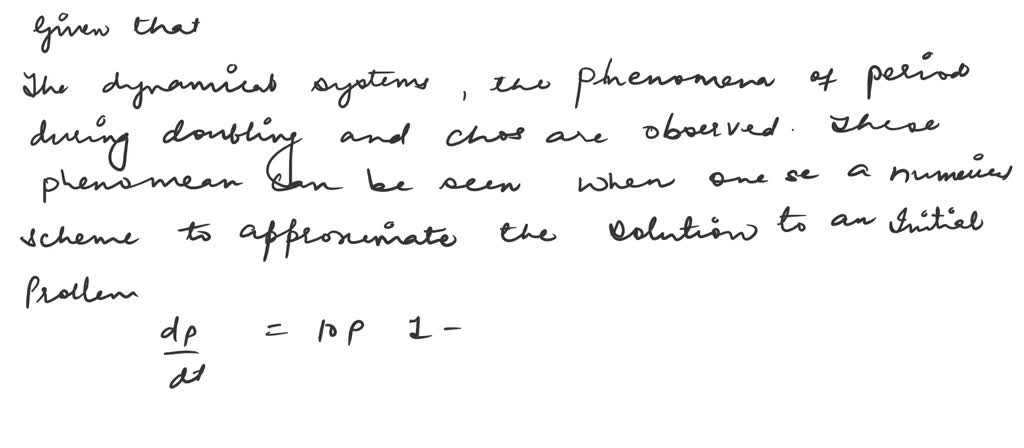 Given that
The dynamical systems, the phenomena of period
during doubling and chos are observed. These
phenomean can be seen when one se a numerical
scheme to approximate the solution to an Initial
Problem
dp/dt = 10 p 1 -